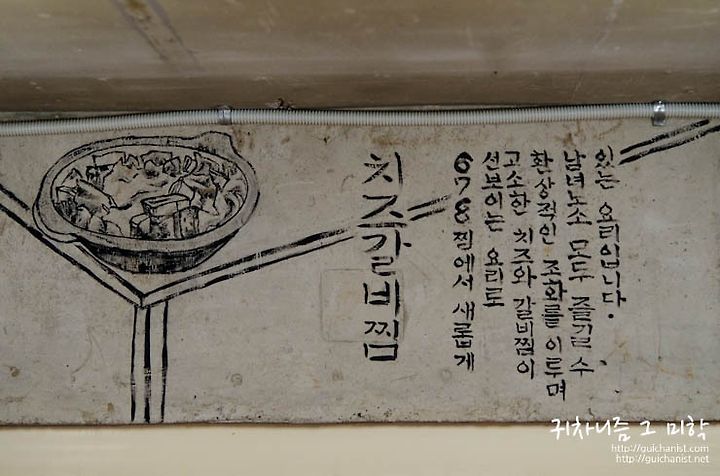 치즈갈비찜
678찜에서 새롭게
선보이는 요리로
고소한 치즈와 갈비찜이
환상적인 조화를 이루며
남녀노소 모두 즐길 수
있는 요리입니다.
귀차니즘 그 미학
http://guichanist.com
http://guichanist.net